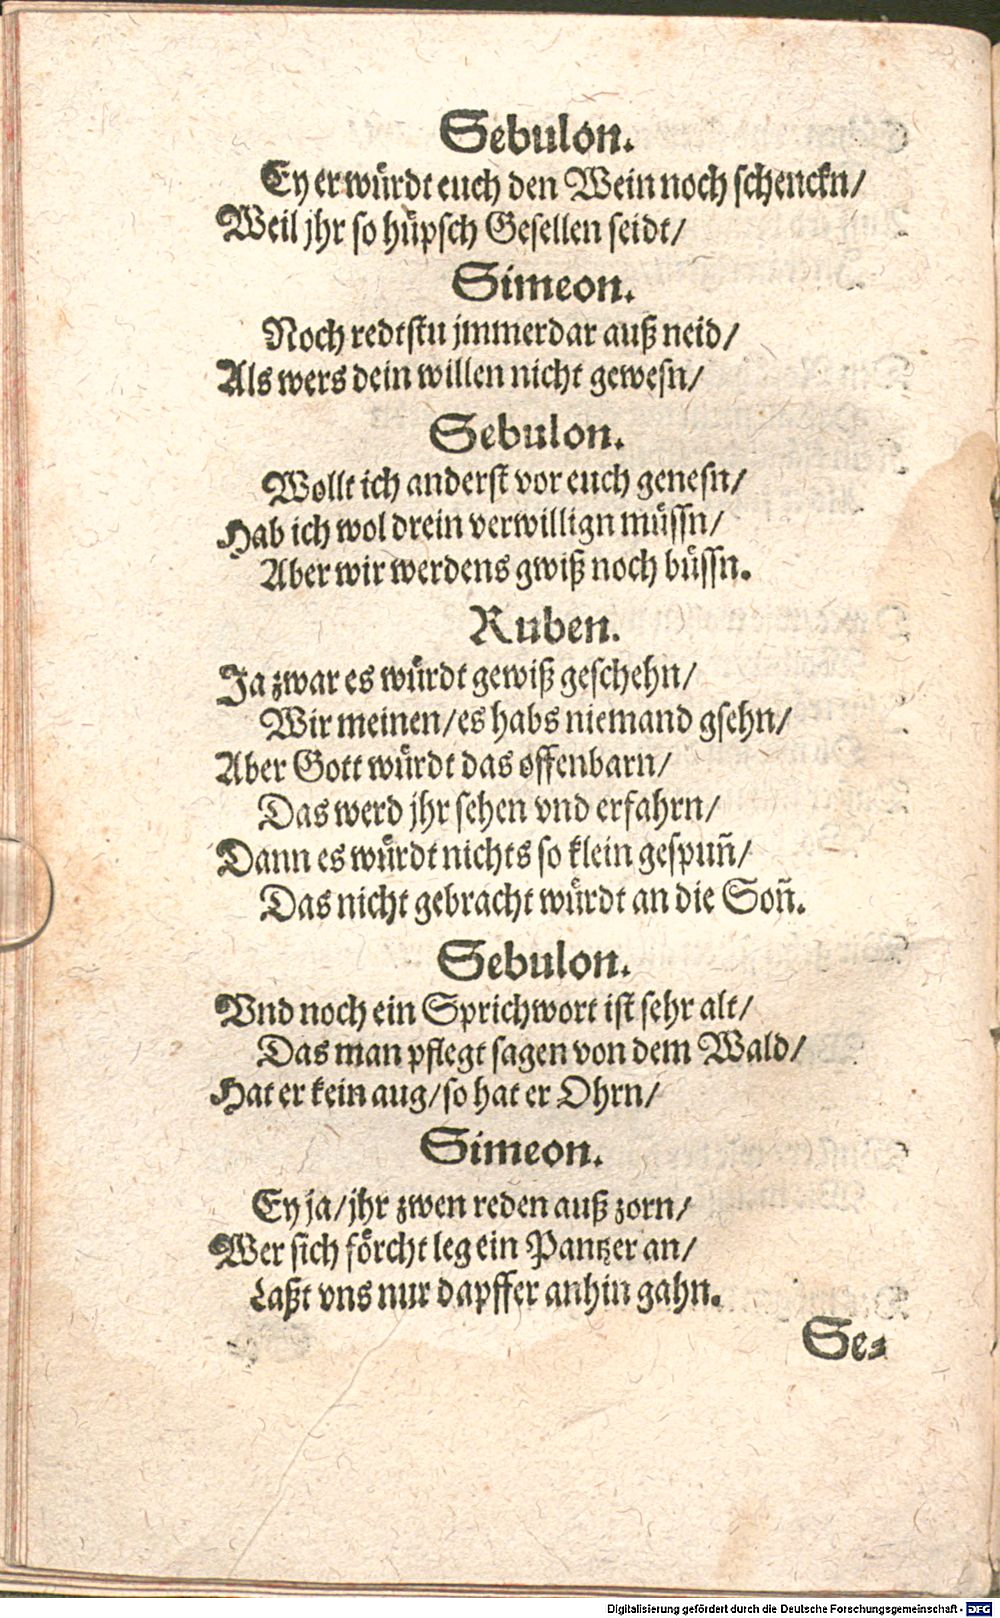 Sebulon.
Ey er würdt euch den Wein noch schenckn/
Weil jhr so hüpsch Gesellen seidt/
Simeon.
Noch redtstu jmmerdar auß neid/
Als wers dein willen nicht gewesn/
Sebulon.
Wollt ich anderst vor euch genesn/
Hab ich wol drein verwillign müssn/
Aber wir werdens gwiß noch büssn.
Ruben.
Ja zwar es würdt gewiß geschehn/
Wir meinen/ es habs niemand gsehn/
Aber Gott würdt das offenbarn/
Das werd jhr sehen vnd erfahrn/
Dann es würdt nichts so klein gespuñ/
Das nicht gebracht würdt an die Soñ.
Sebulon.
Vnd noch ein Sprichwort ist sehr alt/
Das man pflegt sagen von dem Wald/
Hat er kein aug/ so hat er Ohrn/
Simeon.
Ey ja/ jhr zwen reden auß zorn/
Wer sich förcht leg ein Pantzer an/
Laßt vns nur dapffer anhin gahn.
Se-
Digitalisierung gefördert durch die Deutsche Forschungsgemeinschaft - DFG